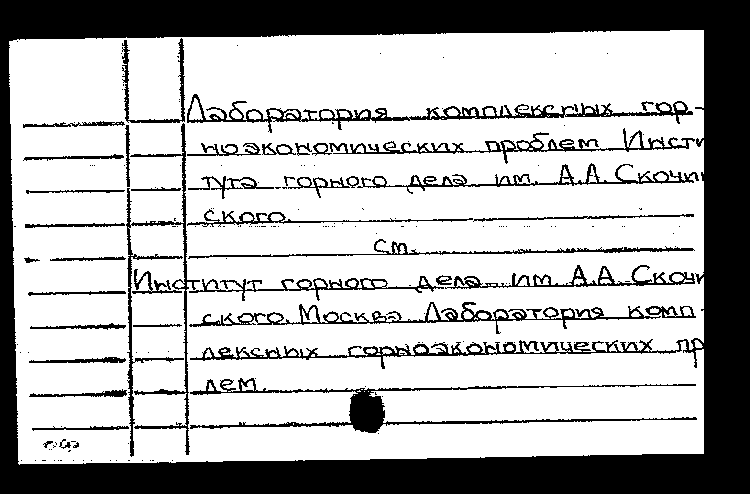 Лаборатория комплексных гор-
ноэкономических проблем Инсти
тута горного дела им. А.А. Скочин
ского.
см.
Институт горного дела им. А.А. Скочи
ского. Москва. Лаборатория комп-
лексных горноэкономических пр
лем.